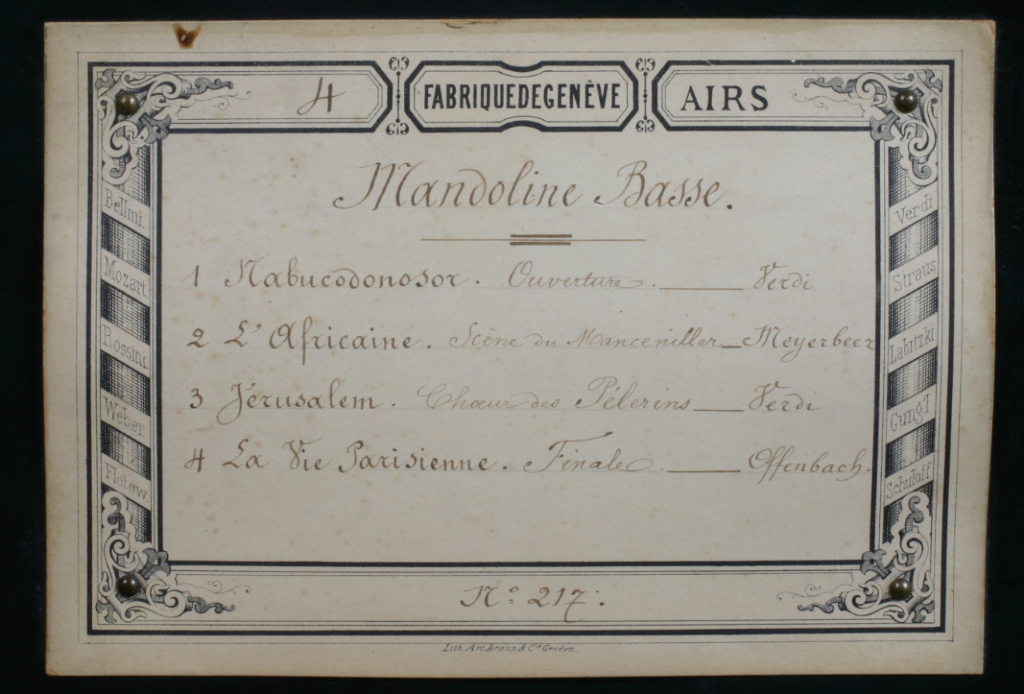 4 FABRIQUE DE GENÊVE AIRS
Mandoline Basse.
1 Nabucodonosor. Ouverture. Verdi
2 L'Africaine. Scène du Manceniller Meyerbeer
3 Jérusalem. Chœur des Pélerins Verdi
4 La Vie Parisienne. Finale. Offenbach.
Bellini.
Mozart.
Rossini.
Weber.
Flotow.
Verdi
Straus
Labitzki
Gung'l
Schuloff
No. 217.
Lith. Art. Braun & Cie Genève.